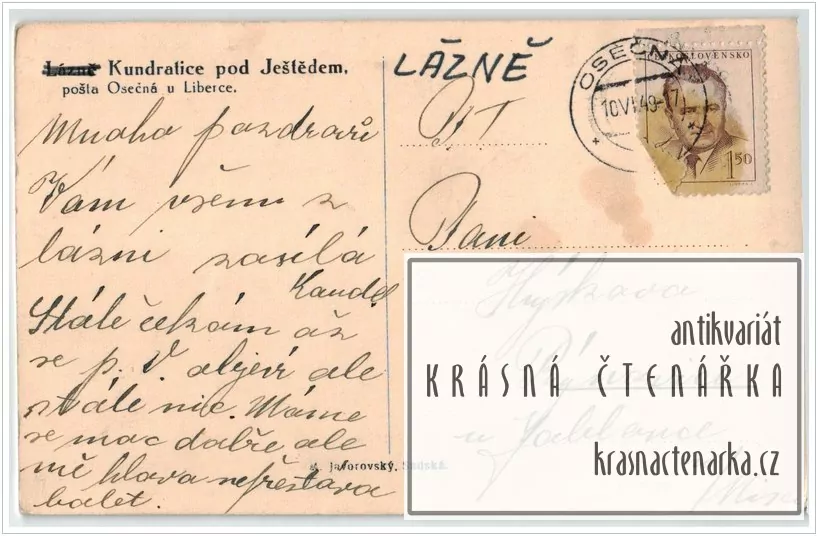 Lázně Kundratice pod Ještědem,
pošta Osečná u Liberce.
LÁZNĚ
OSEČNÁ
10.VI.49-
(7)
ČESKOSLOVENSKO
1 50
Mnoho pozdravů
Vám všem z
lázní zasílá
Kaudel
Stále čekám až
se p. V. objeví ale
stále nic. Máme
se moc dobře ale
mě hlava nepřestává
bolet.
Paní
Hýskova
u Jablonce
K. Javorovský, Sadská.
antikvariát
KRÁSNÁ ČTENÁŘKA
krasnactenarka.cz